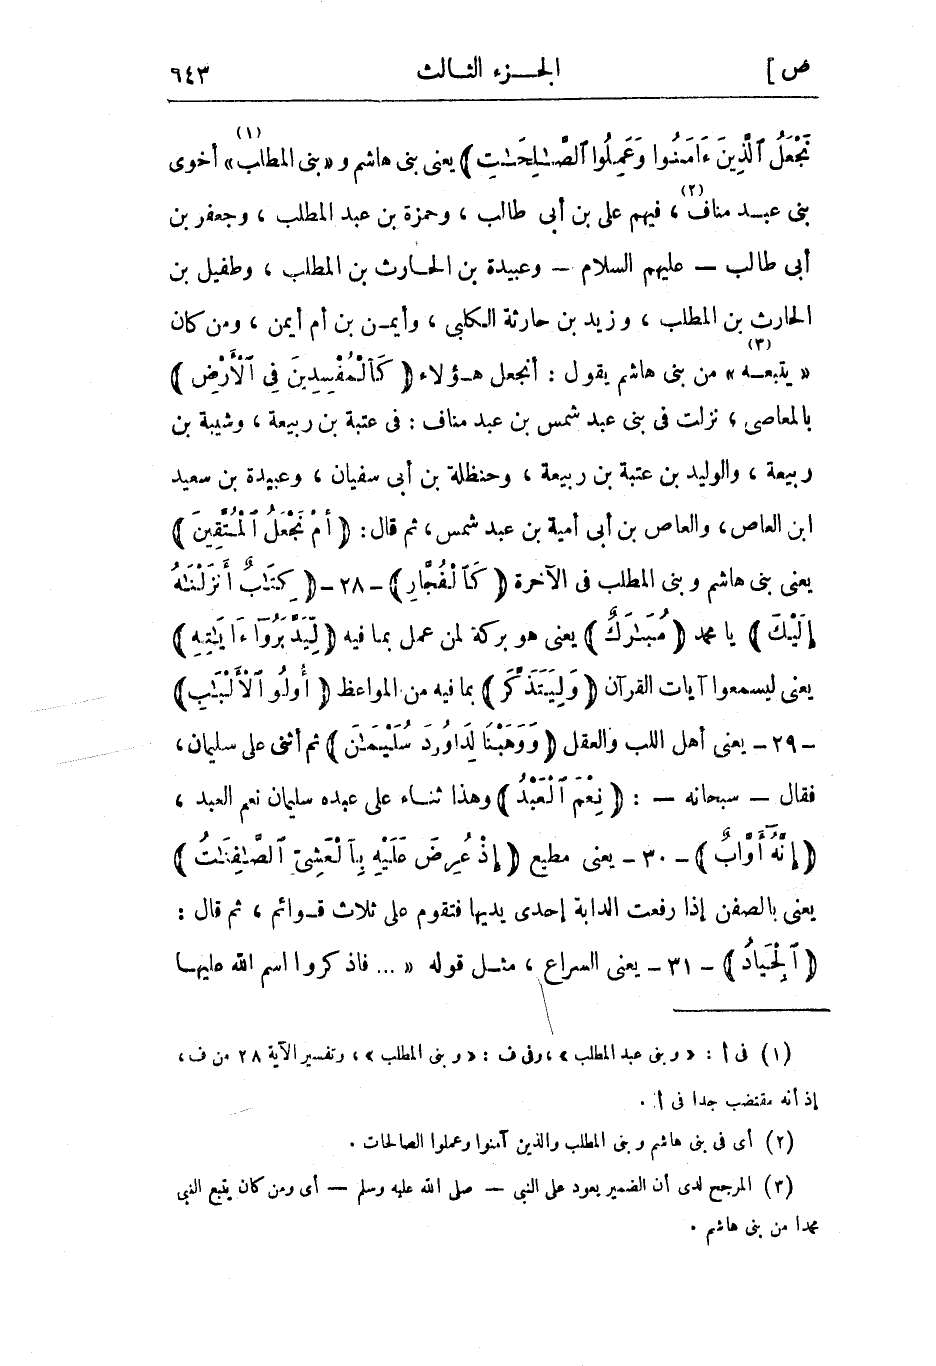 ص ] الجزء الثالث ٦٤٣
نَجْعَلُ ٱلَّذِينَ ءَامَنُوا وَعَمِلُوا ٱلصَّـٰلِحَـٰتِ ﴾ يعنى بنى هاشم و «بنى المطلب» (١) أخوى
بنى عبـد مناف (٢) ، فيهم على بن أبى طالب ، وحمزة بن عبد المطلب ، وجعفر بن
أبى طالب — عليهم السلام — وعبيدة بن الحارث بن المطلب ، وطفيل بن
الحارث بن المطلب ، وزيد بن حارثة الكلبى ، وأيمـن بن أم أيمن ، ومن كان
« يتبعـه » (٣) من بنى هاشم يقول : أنجعل هـؤلاء ﴿ كَٱلْمُفْسِدِينَ فِى ٱلْأَرْضِ ﴾
بالمعاصى ، نزلت فى بنى عبد شمس بن عبد مناف : فى عتبة بن ربيعة ، وشيبة بن
ربيعة ، والوليد بن عتبة بن ربيعة ، وحنظلة بن أبى سفيان ، وعبيدة بن سعيد
ابن العاص ، والعاص بن أبى أمية بن عبد شمس ، ثم قال : ﴿ أَمْ نَجْعَلُ ٱلْمُتَّقِينَ ﴾
يعنى بنى هاشم وبنى المطلب فى الآخرة ﴿ كَٱلْفُجَّارِ ﴾ - ٢٨ - ﴿ كِتَـٰبٌ أَنزَلْنَـٰهُ
إِلَيْكَ ﴾ يا محمد ﴿ مُبَـٰرَكٌ ﴾ يعنى هو بركة لمن عمل بما فيه ﴿ لِّيَدَّبَّرُوٓا ءَايَـٰتِهِ ﴾
يعنى ليسمعوا آيات القرآن ﴿ وَلِيَتَذَكَّرَ ﴾ بما فيه من المواعظ ﴿ أُولُو ٱلْأَلْبَـٰبِ ﴾
- ٢٩ - يعنى أهل اللب والعقل ﴿ وَوَهَبْنَا لِدَاوُۥدَ سُلَيْمَـٰنَ ﴾ ثم أثنى على سليمان ،
فقال — سبحانه — : ﴿ نِعْمَ ٱلْعَبْدُ ﴾ وهذا ثنـاء على عبده سليمان نعم العبد ،
﴿ إِنَّهُۥٓ أَوَّابٌ ﴾ - ٣٠ - يعنى مطيع ﴿ إِذْ عُرِضَ عَلَيْهِ بِٱلْعَشِىِّ ٱلصَّـٰفِنَـٰتُ ﴾
يعنى بالصفن إذا رفعت الدابة إحدى يديها فتقوم على ثلاث قـوائم ، ثم قال :
﴿ ٱلْجِيَادُ ﴾ - ٣١ - يعنى السراع ، مثـل قوله « ... فاذكروا اسم الله عليهـا
(١) فى أ : « وبنى عبد المطلب » ، وفى ف : « وبنى المطلب » ، وتفسير الآية ٢٨ من ف ،
إذ أنه مقتضب جدا فى أ .
(٢) أى فى بنى هاشم وبنى المطلب والذين آمنوا وعملوا الصالحات .
(٣) المرجح لدى أن الضمير يعود على النبى — صلى الله عليه وسلم — أى ومن كان يتبع النبى
محمدا من بنى هاشم .